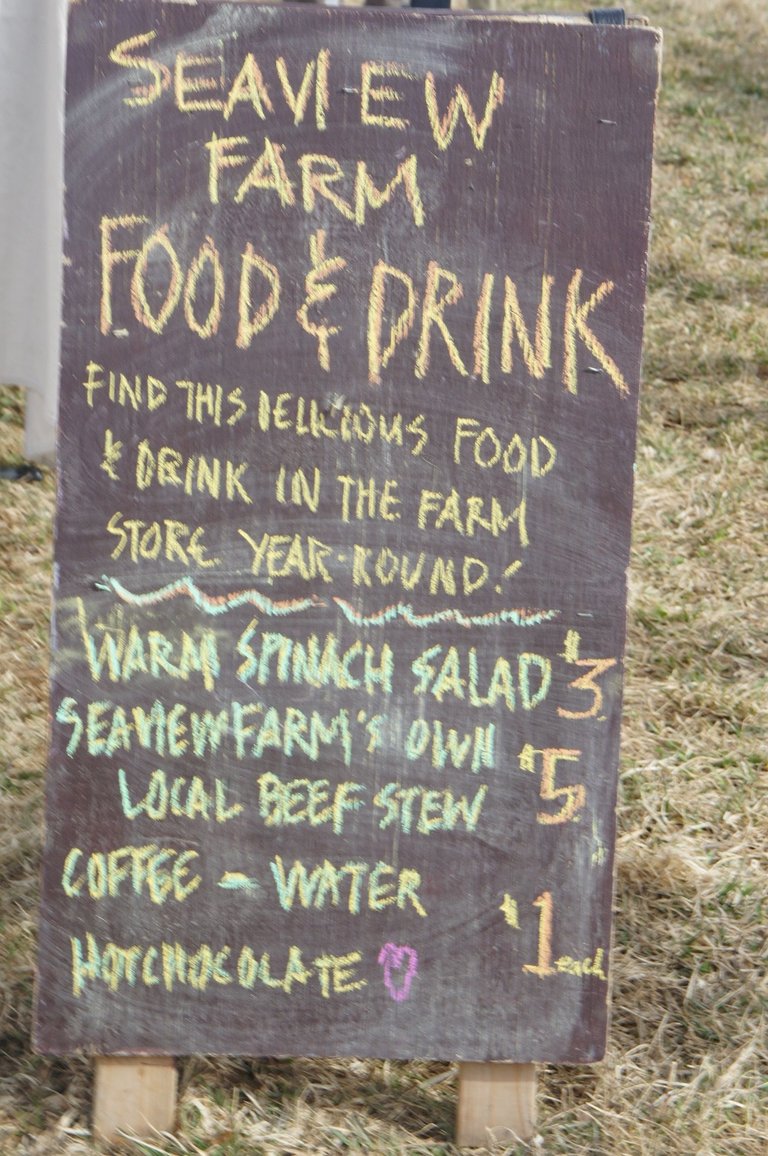 SEAVIEW
FARM
FOOD & DRINK
FIND THIS DELICIOUS FOOD
& DRINK IN THE FARM
STORE YEAR-ROUND!
WARM SPINACH SALAD $3
SEAVIEW FARM'S OWN
LOCAL BEEF STEW $5
COFFEE - WATER
HOT CHOCOLATE $1 each